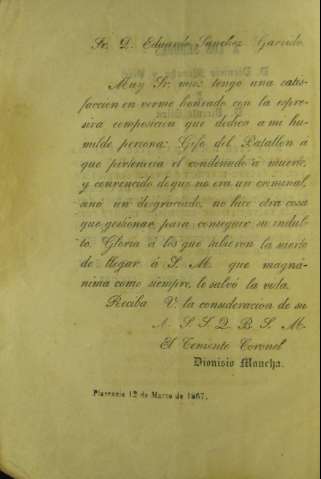 Sr. D. Eduardo Sanchez Garrido.
Muy Sr. mio: tengo una satis-
faccion en verme honrado con la espre-
siva composicion que dedica a mi hu-
milde persona: Gefe del Batallon a
que pertenecia el condenado á muerte,
y convencido de que no era un criminal,
sinó un desgraciado, no hice otra cosa
que gestionar para conseguir su indul-
to. Gloria á los que tubieron la suerte
de llegar á S. M. que magná-
nima como siempre, le salvó la vida.
Reciba V. la consideracion de su
A. S. S. Q. B. S. M.
El Teniente Coronel
Dionisio Mancha.
Plasencia 12 de Marzo de 1867.